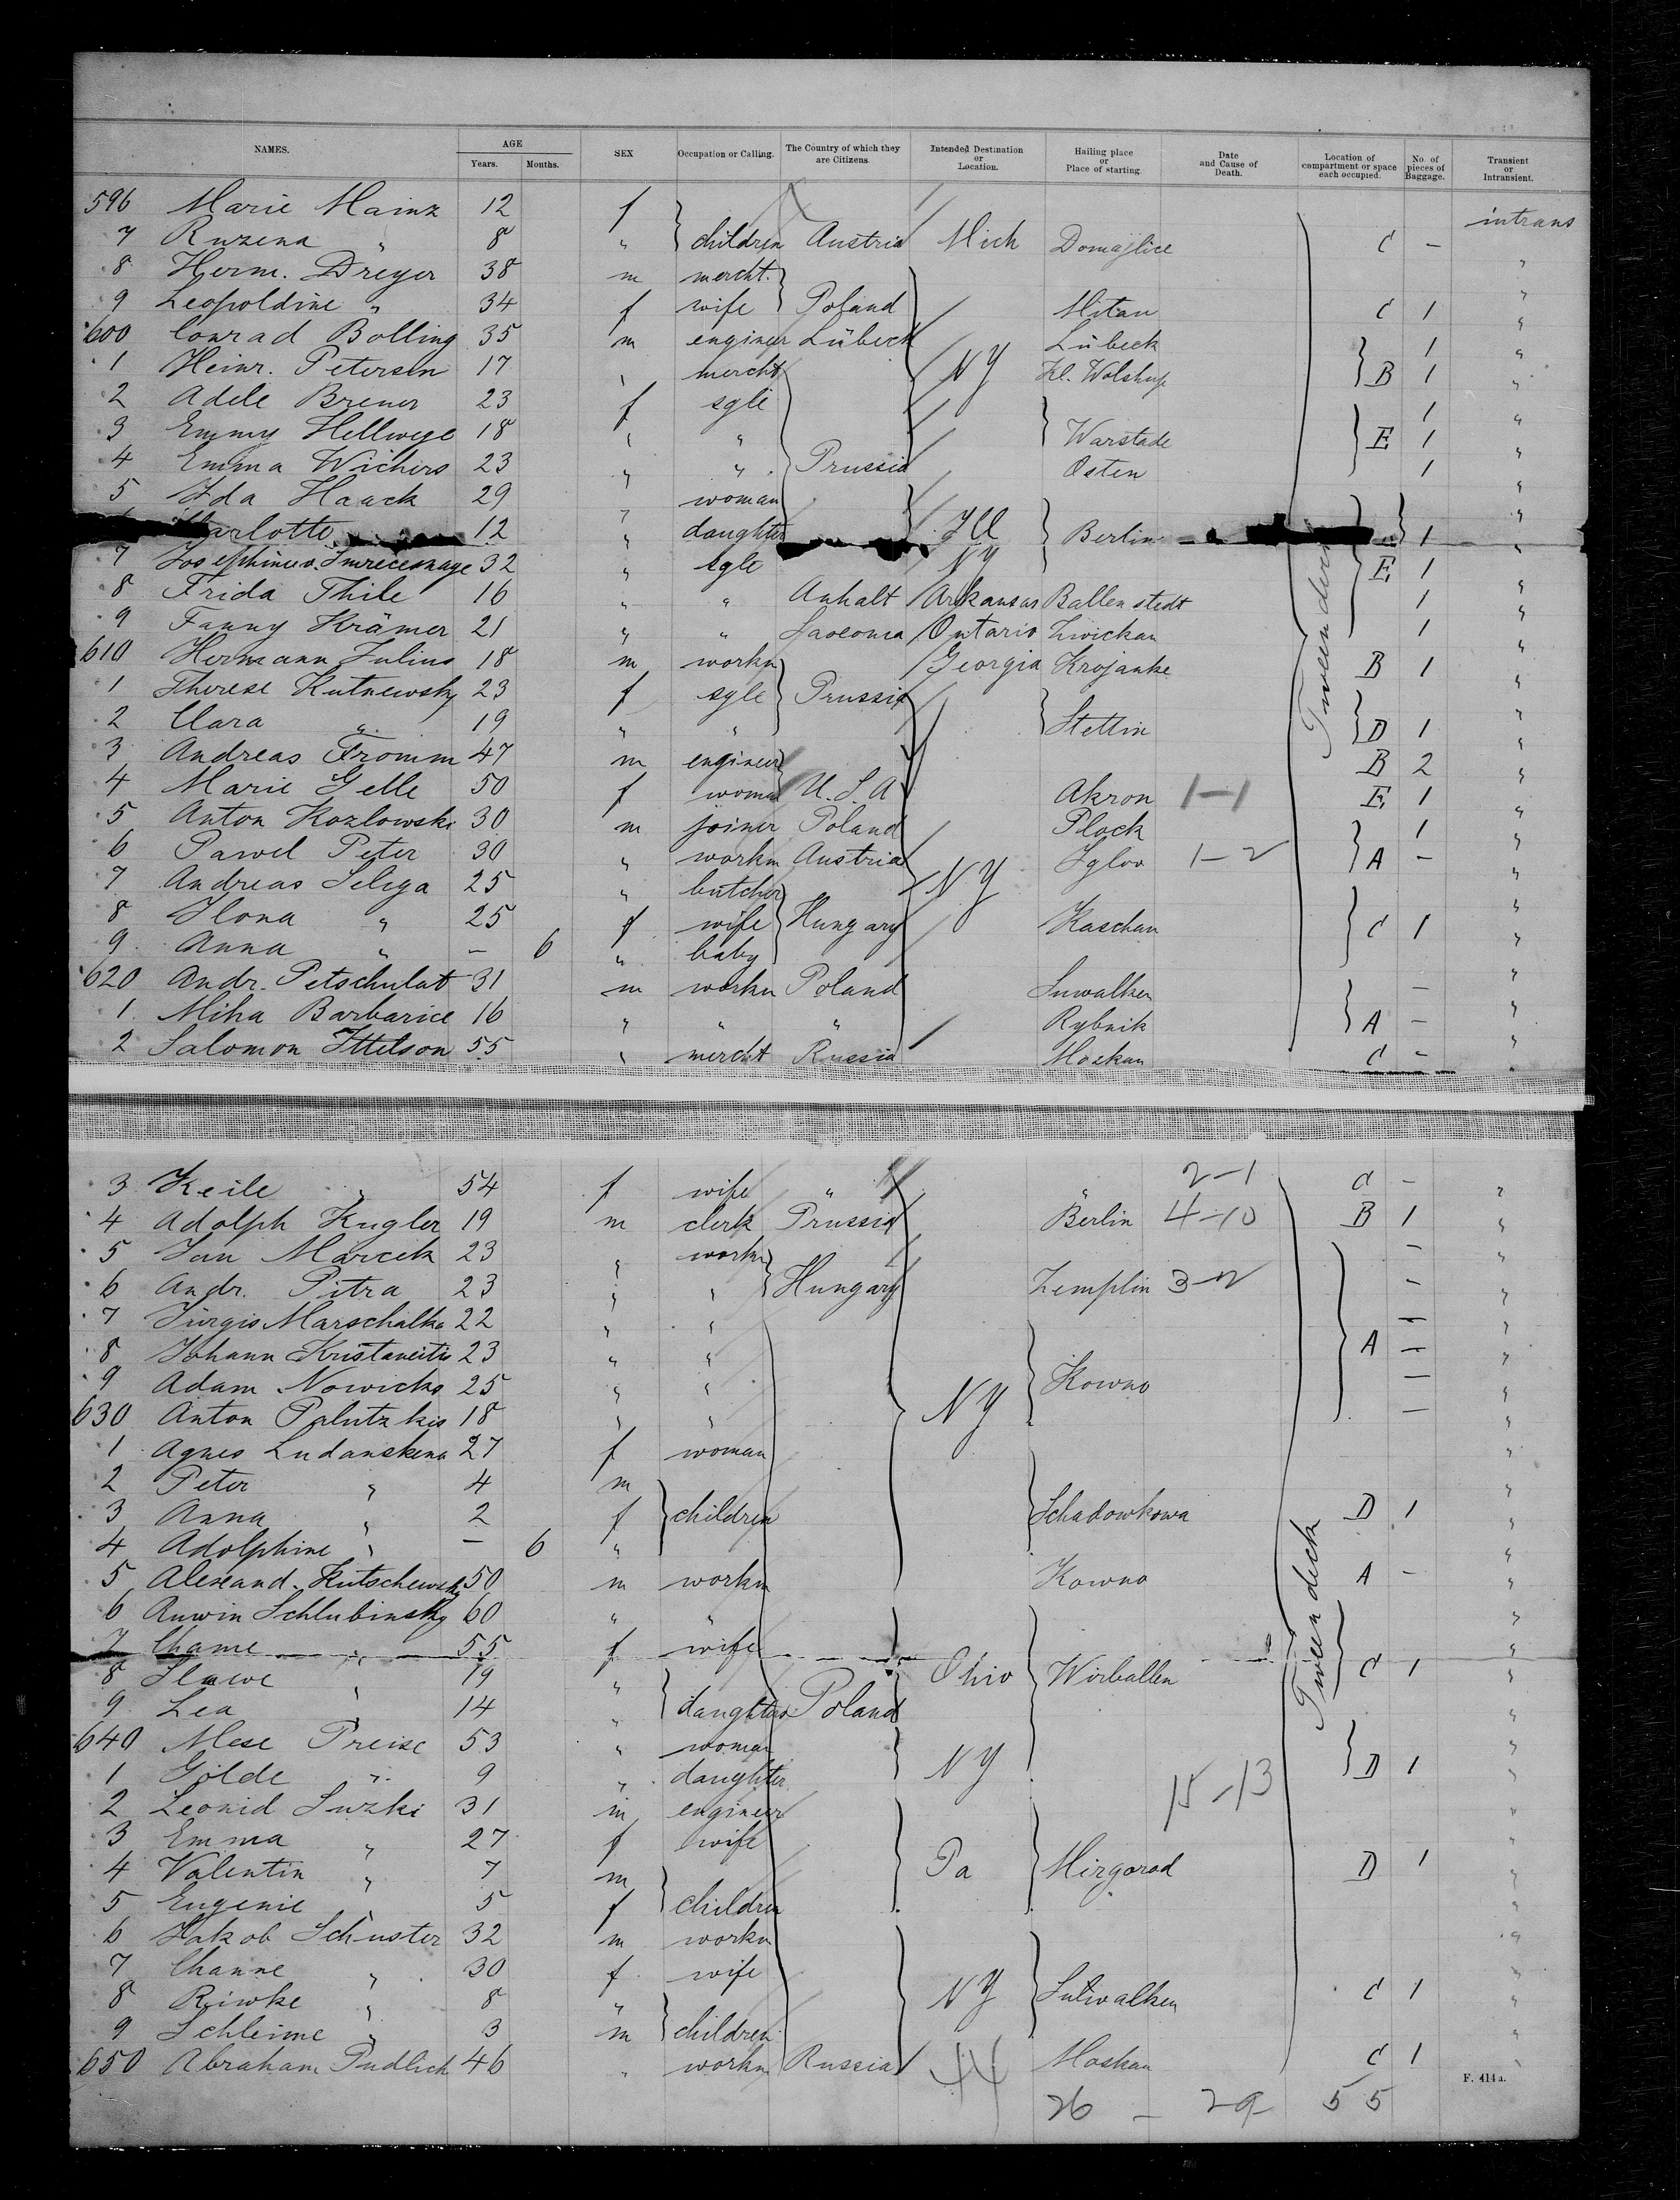 NAMES. AGE Years. Months. SEX Occupation or Calling. The Country of which they are Citizens. Intended Destination or Location. Hailing place or Place of starting. Date and Cause of Death. Location of compartment or space each occupied. No. of pieces of Baggage. Transient or Intransient.
596 Marie Mainz 12 f intrans
7 Ruzena " 8 " children Austria Mich C -
8 Herm. Dreyer 38 m mercht. "
9 Leopoldine " 34 f wife Poland Mitau C 1 "
600 Conrad Bolling 35 m engineer Lübeck Lübeck 1 "
1 Heinr. Petersen 17 " mercht NY Kl. B 1 "
2 Adele Brener 23 f sgle 1 "
3 Emmy Hellwege 18 " " Warstade E 1 "
4 Emma Wichers 23 " " Prussia Osten 1 "
5 Ida Haack 29 " woman "
arlotte 12 " daughter Ill Berlin 1 "
7 32 " sgle NY E 1 "
8 Frida Thile 16 " " Anhalt Arkansas Ballenstedt 1 "
9 Fanny Krämer 21 " " Ontario Zwickau 1 "
610 Hermann Julius 18 m workn Georgia Krojanke B 1 "
1 Therese Kutnewsky 23 f sgle Prussia "
2 Clara " 19 " " Stettin D 1 "
3 Andreas Fromm 47 m engineer B 2 "
4 Marie Gelle 50 f woman U.S.A Akron 1-1 E 1 "
5 Anton Kozlowski 30 m joiner Poland Plock 1 "
6 Pawel Peter 30 " workm Austria Igloo 1-2 A - "
7 Andreas Seliga 25 " butcher NY "
8 Ilona " 25 f wife Hungary Kaschau C 1 "
9 Anna " - 6 " baby "
620 Andr. Petschulat 31 m workn Poland Suwalken - "
1 Miha Barbarice 16 " " " Rybnik A - "
2 Salomon Ittelson 55 " mercht Russia Moskau C - "
3 Keile " 54 f wife " " 2-1 C - "
4 Adolph Kugler 19 m clerk Prussia Berlin 4-10 B 1 "
5 Jan Marcek 23 " workn - "
6 Andr. Pitra 23 " " Hungary Zemplin 3-2 - "
7 Jürgis Marschalka 22 " " - "
8 Johann Kristaveitis 23 " " A - "
9 Adam Nowicks 25 " " Kowno - "
630 Anton Palutzkis 18 " " NY - "
1 Agnes Ludanskena 27 f woman "
2 Peter " 4 m "
3 Anna " 2 f children Schadowkowa D 1 "
4 Adolphine " - 6 " "
5 Alexand. Kutschewsky 50 m workn Kowno A - "
6 Anwin Schlubinsky 60 " " "
7 Chame " 55 f wife "
8 Slawe " 19 " Ohio Wirballen C 1 "
9 Lea " 14 " daughters Poland "
640 Mese Preise 53 " woman "
1 Golde " 9 " daughter NY D 1 "
2 Leonid Suzki 31 m engineer 15-13 "
3 Emma " 27 f wife "
4 Valentin " 7 m Pa Mirgorod D 1 "
5 Eugenie " 5 f children "
6 Jakob Schuster 32 m workn "
7 Channe " 30 f wife "
8 Riwke " 8 " NY Sulwalken C 1 "
9 Schleime " 3 m children "
650 Abraham Pudlich 46 " workn Russia Moskau C 1 "
Tween deck
Tween deck
44
F. 414a.
26 - 29 55